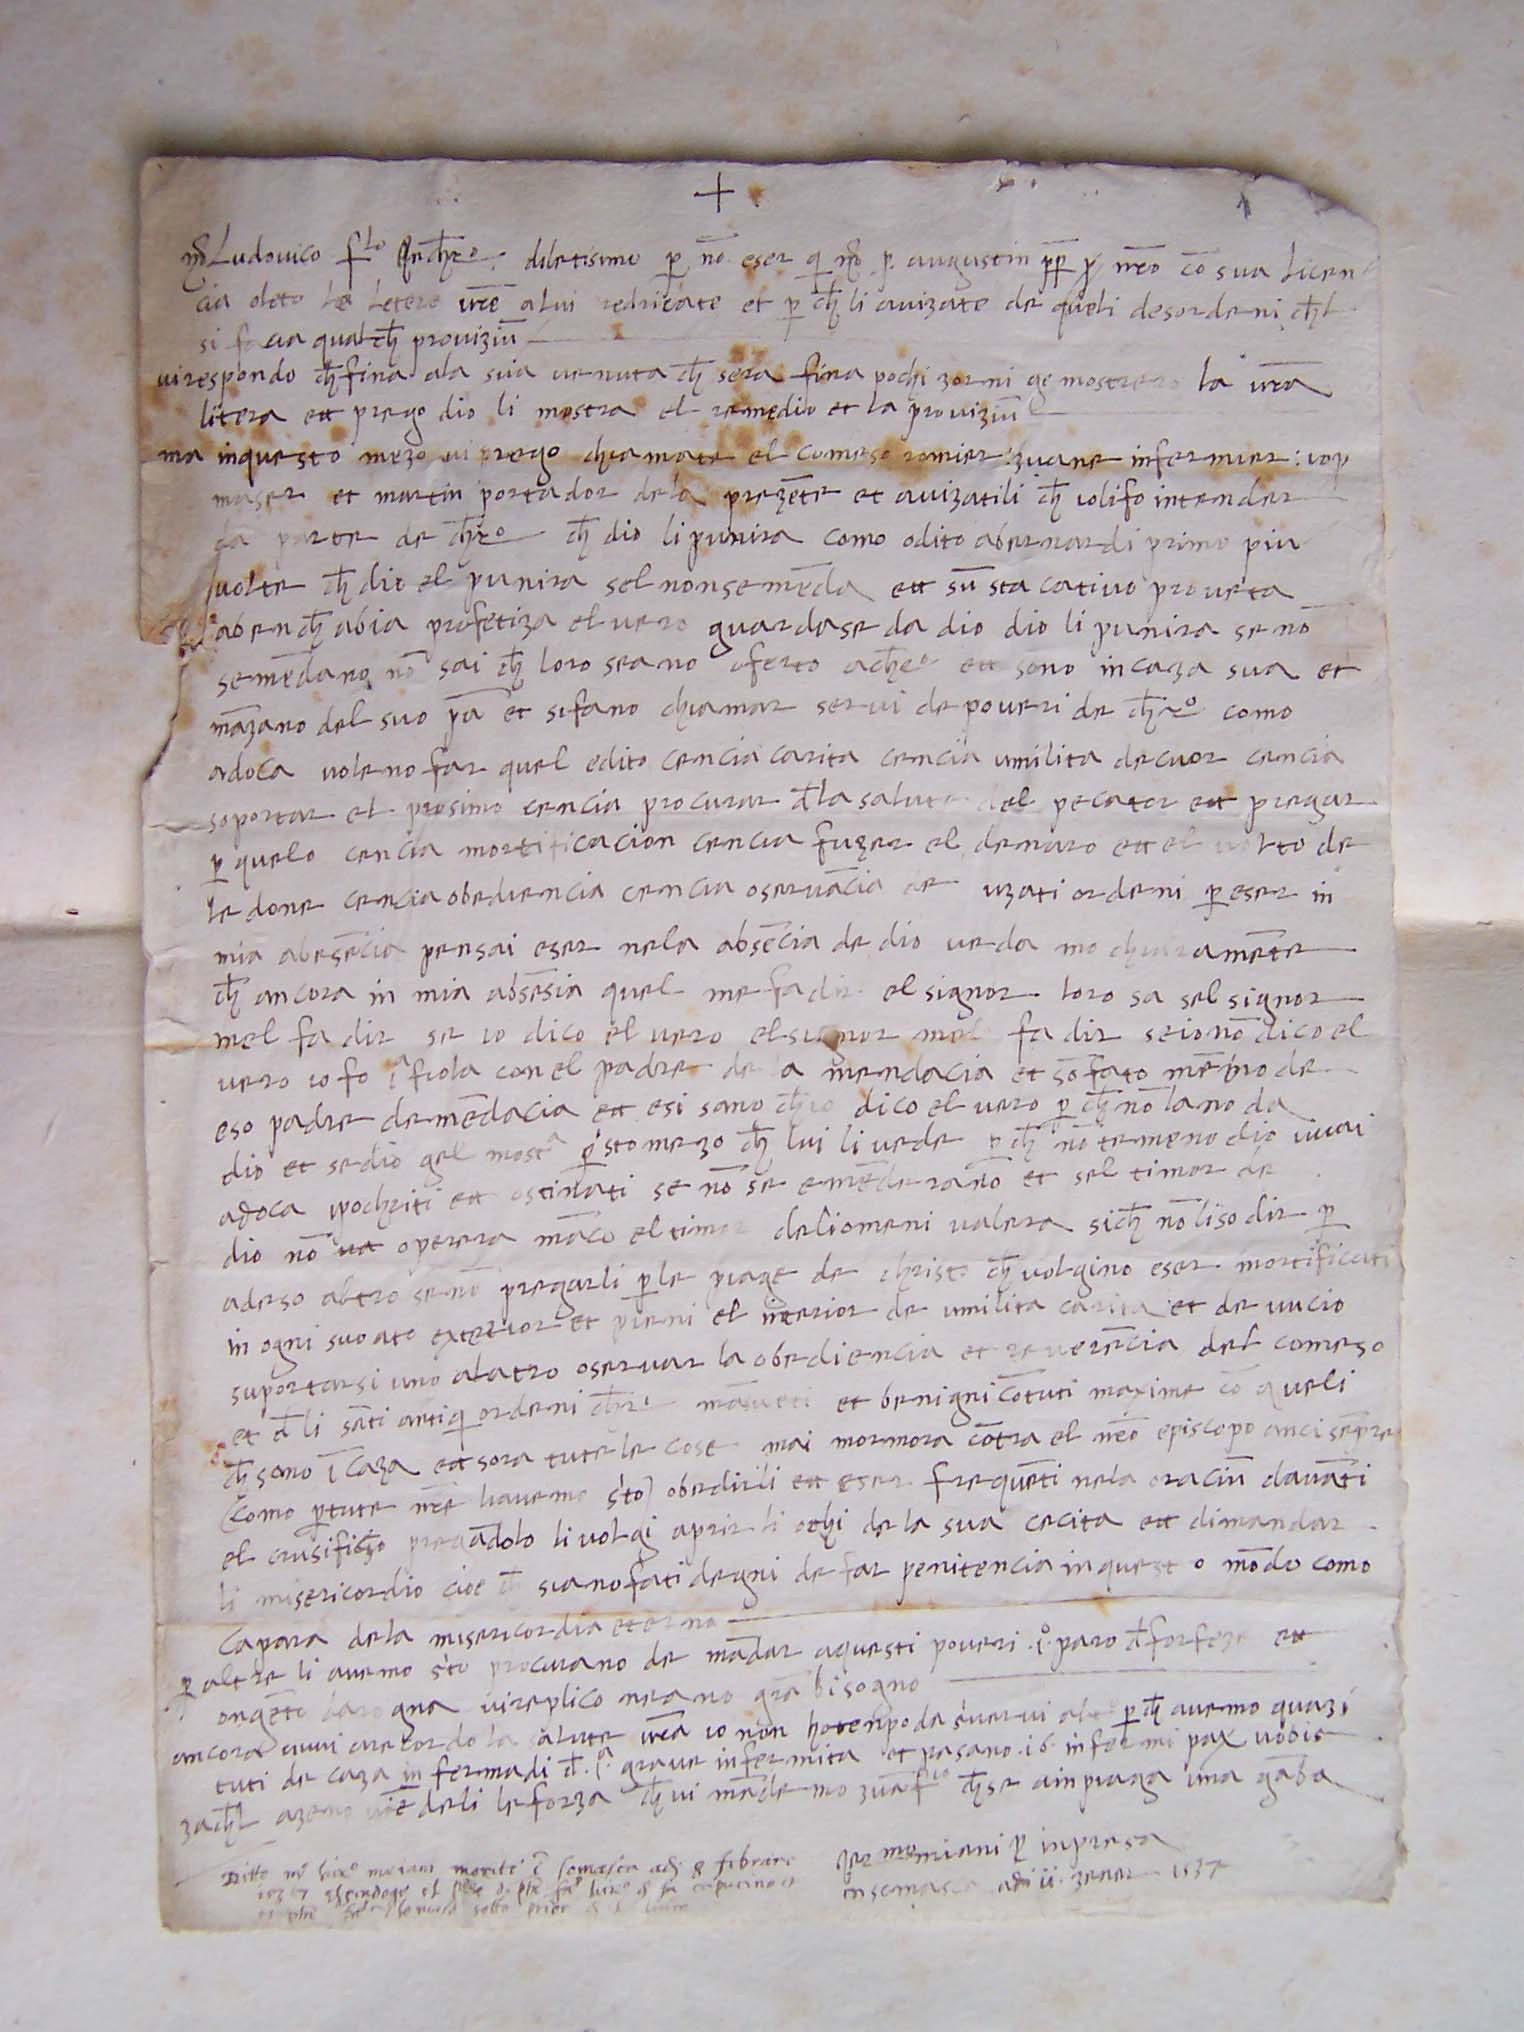 +
Ludovico f.lo in chro diletisimo p nō eser q mr p. augustin pp nro cō sua licen
cia oleto le letere vre a lui redricate et p ch li avizate de queli desordeni ch l
si facia qualch proviziun
vi respondo ch fina ala sua venuta ch sera fina pochi zorni ge mostrero la vra
litera ett prego dio li mostra el remedio et la proviziun
ma in questo mezo vi prego chiamate el comeso romier : zuane infermier : iop
maser et martin portador dela prezēte et avizatili ch voli fo intender
da parte de chro ch dio li punira como o dito a bernardi primo piu
volte ch dio el punira sel non se mēda ett sū sta cativo proveta
a ben ch abia profetiza el vero guardase da dio dio li punira se nō
se mēdano nō sai ch loro se ano oferto a chro ett sono in caza sua et
māzano del suo pā et si fano chiamar servi de poveri de chro como
adoca voleno far quel e dito cencia carita cencia umilita de cuor cencia
soportar el prosimo cencia procurar dla salute del pecator ett pregar
p quelo cencia mortificacion cencia fuzer el denaro ett el volto de
le done cencia obediencia cencia oservācia de uzati ordeni p eser in
mia abesēcia pensai eser nela absēcia de dio veda mo chiaramēte
ch ancora in mia absēsia quel me fa dir el signor loro sa sel signor
mel fa dir se io dico el vero el signor mel fa dir se io nō dico el
vero io fo i.a fiola con el padre de la mendacia et sō fato mēbro de
eso padre de mēdacia ett esi sano ch io dico el vero p ch nō lano da
dio et se dio gel most.a p sto mezo ch lui li vede p ch nō temeno dio vivi
adoca ipochriti ett ostinati se nō se emēderanō et sel timor de
dio nō opera māco el timor deli omeni valera si ch nō li so dir p
aderso altro se nō pregarli p le piage de christo ch volgino eser mortificati
in ogni suo ato exterior et pieni el interior de umilita carita et de uncio
suportarsi uno alatro oservar la obediencia et reverēcia del comeso
et dli sāti ātiqi ordeni chri māsueti et benigni cō tuti maxime cō queli
ch sono ī caza ett sora tute le cose mai mormora cōtra el nro episcopo anci sēpre
(como p tute nre l avemo sto) obedirli ett eser frequēti nela oraciū davāti
el crusifichso pregādolo li volgi aprir li ochi de la sua cecita ett dimandar
li misericordio cioe ch siano fati degni de far penitencia in quest o mōdo como
capara dela misericordia eterna
p altre li avemo sto procurano de mādar a questi poveri i.o paro d forfeze ett
ongēto da rogna vi replico ne ano grā bisogno
ancora vivi arecordo la salute vra io non ho tenpo da scriver vi altro p ch avemo quazi
tuti de caza in fermadi d i.a grave infermita et pasano .16. infermi pax vobis
zach azeno deli le forza ch vi mādemo zuā f.co ch se a in piaga una gāba
Jer.mo miani p inpresa
in somasca adi 11 zener 1537
Ditto mr hier.o miani morite ī Somasca adi 8 febraro
1537